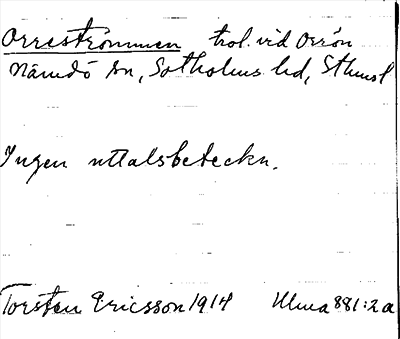 Orreströmmen trol. vid Orrön
Nämdö sn, Sotholms hd, Sthmsl
Ingen uttalsbeteckn.
Torsten Ericsson 1914 Ulma 881:2a